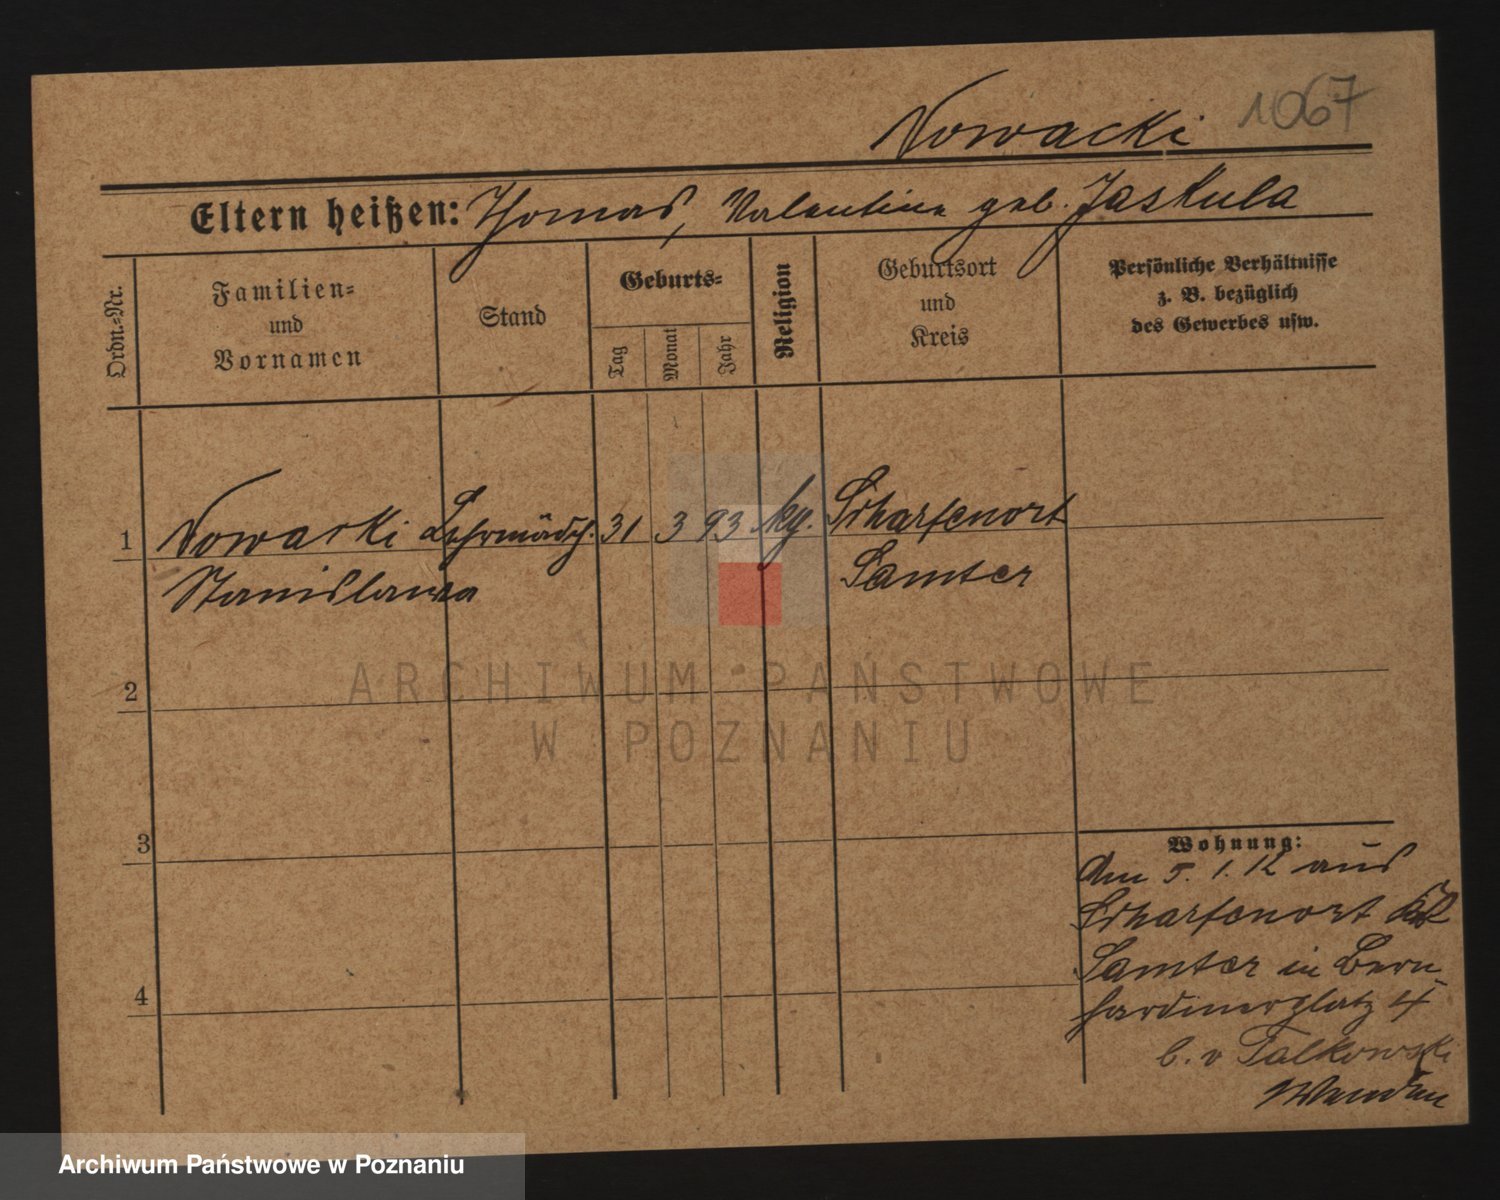 Nowacki 1067
Eltern heißen: Thomas, Valentine geb. Jaskula
Ordn.-Nr.
Familien-
und
Vornamen
Stand
Geburts-
Tag
Monat
Jahr
Religion
Geburtsort
und
Kreis
Persönliche Verhältnisse
z. B. bezüglich
des Gewerbes usw.
1 Nowacki Lehrmädch. 31 3 93 kg. Scharfenort
Stanislawa Samter
2
3
4
Wohnung:
Am 5. 1. 12 aus
Scharfenort
Samter in Bern-
hardinerplatz 4
b. v Falkowski
ARCHIWUM PAŃSTWOWE
W POZNANIU
Archiwum Państwowe w Poznaniu